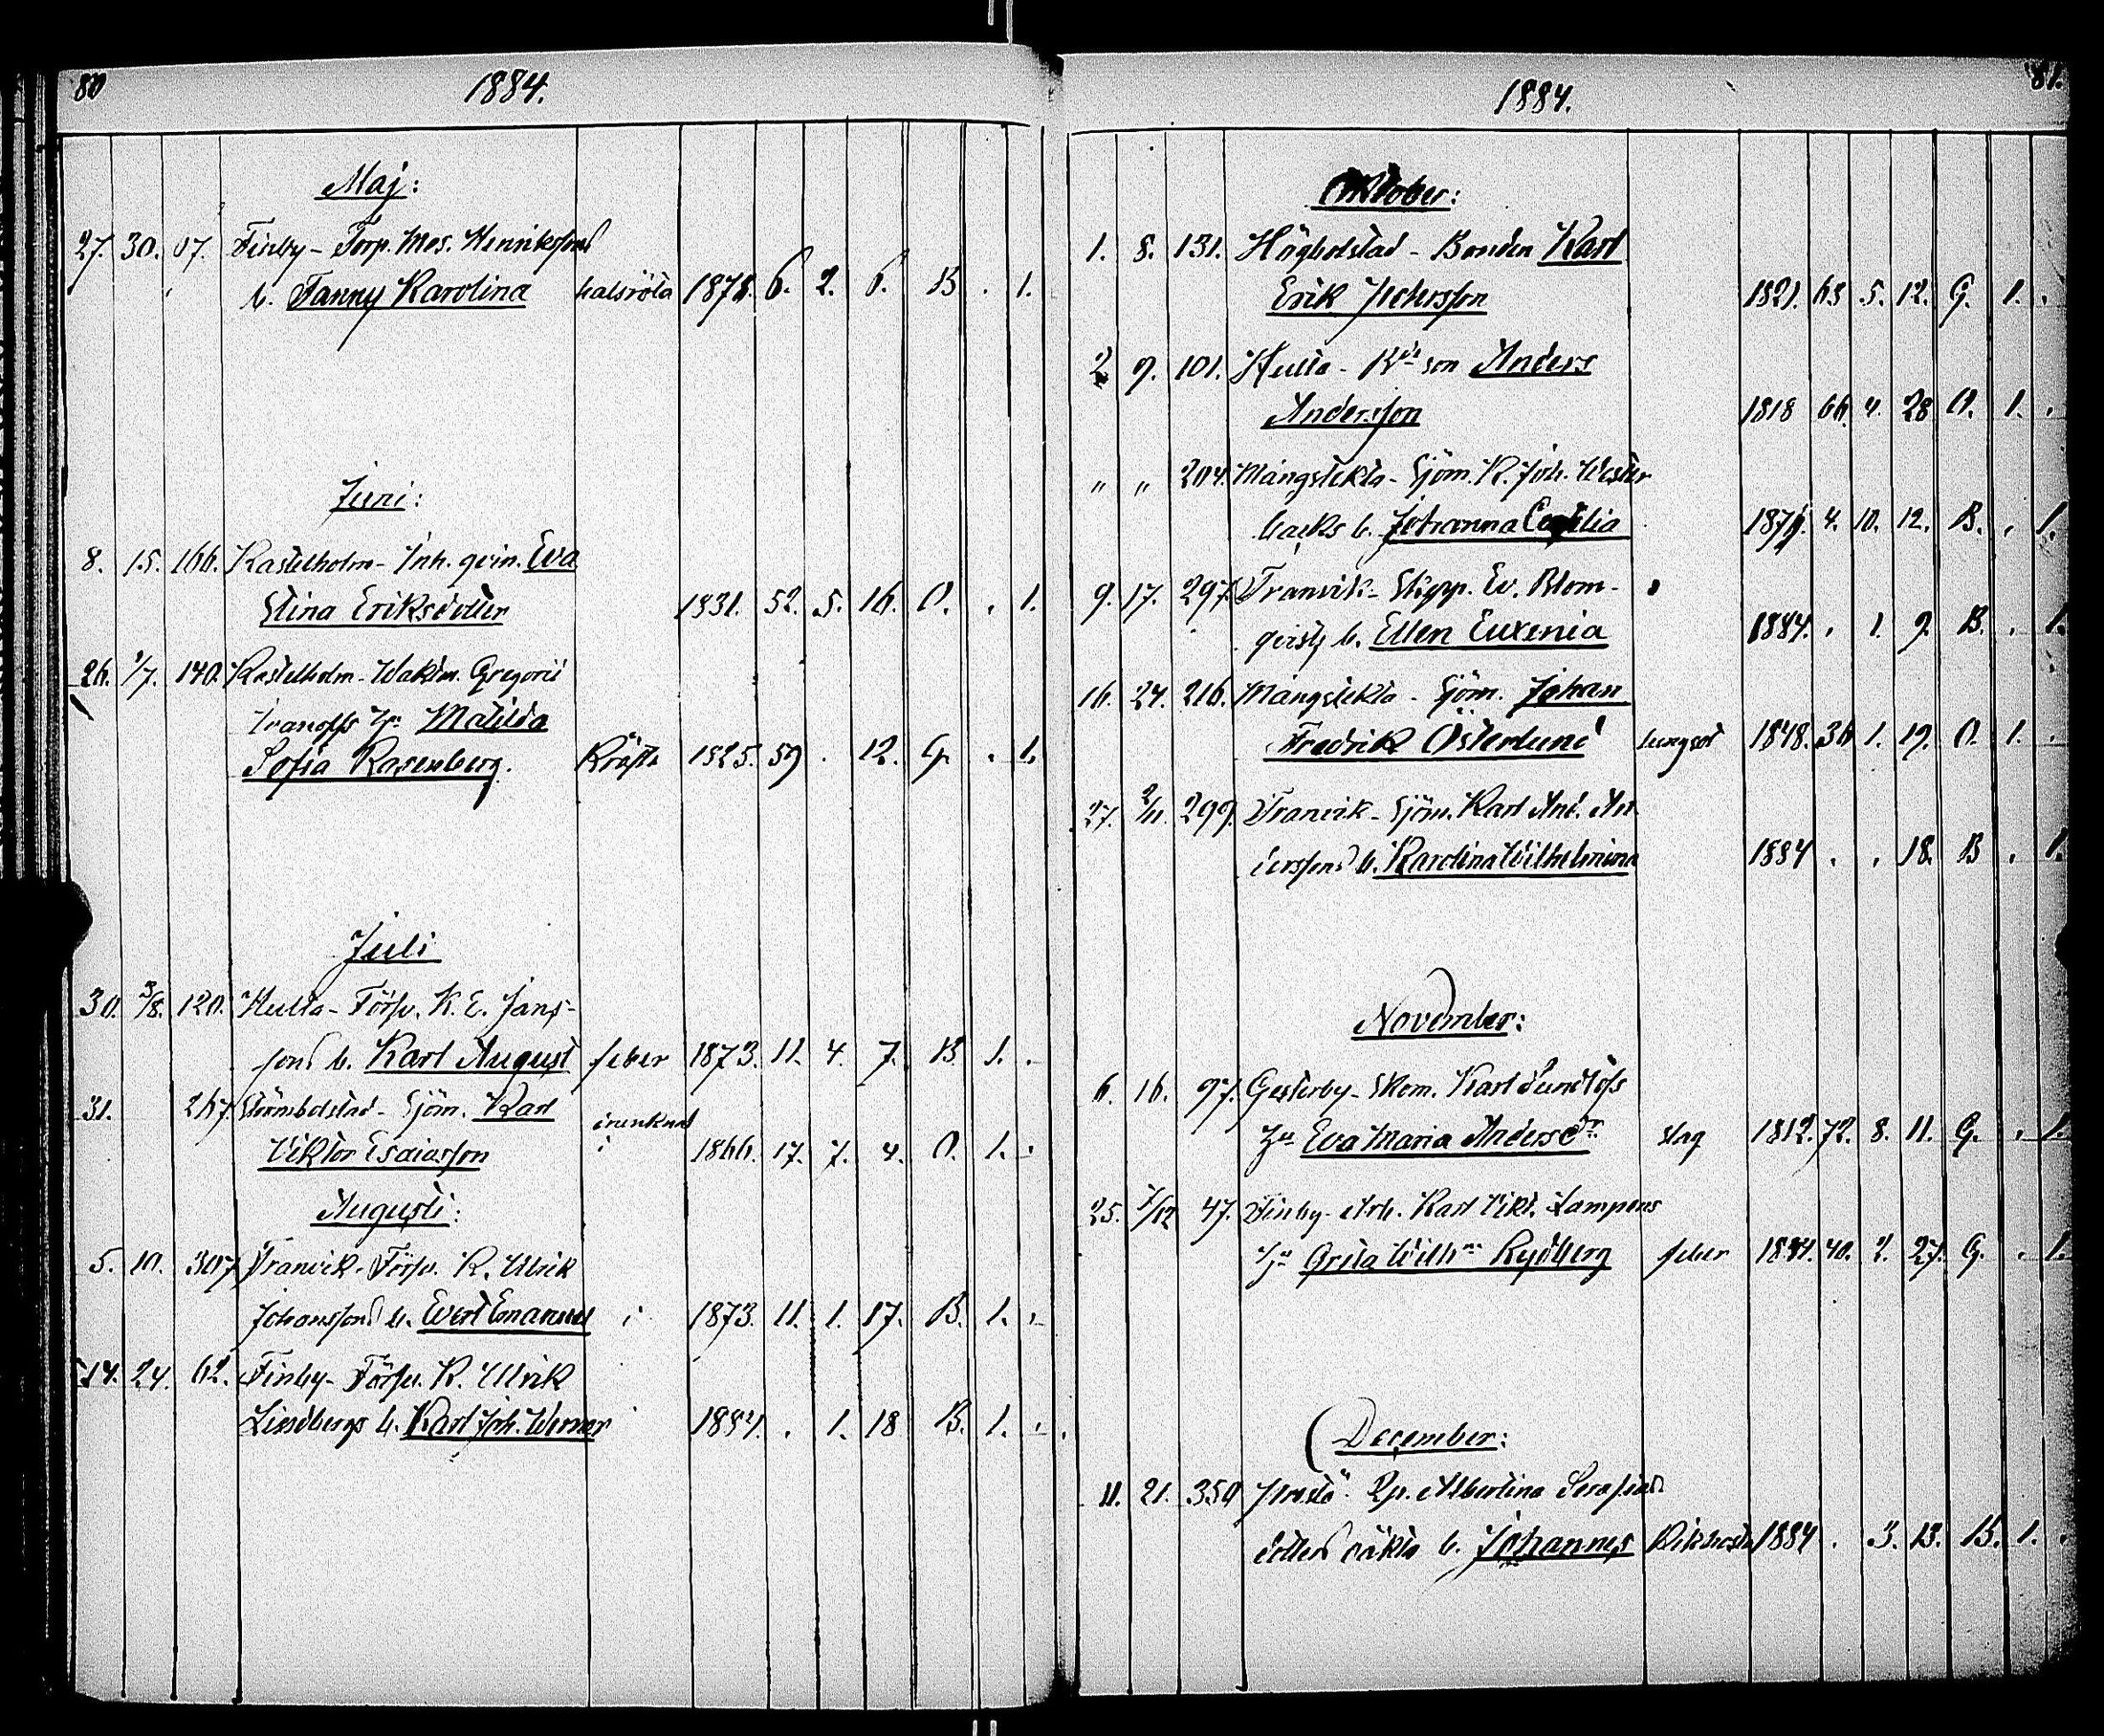 80
1884.
Maj:
27. 30. 07. Finby - Torp. Mos. Henrikssons
b. Fanny Karolina halsröta 1878. 6. 2. 6. B . 1.
Juni:
8. 15. 166. Kastelholm - Inh. qvin. Eva
Stina Eriksdotter 1831. 52. 5. 16. O. . 1.
26. 1/7. 140. Kastelholm - Waktm. Gregorii
Ivanoffs Matilda
Sofia Rasenberg. Kräfta 1825. 59 . 12. G. . 1.
Juli
30. 3/8. 120. Hulta - Förpv. K. E. Jans-
sons b. Karl August feber 1873. 11. 4. 7. B 1. .
31. 267. Strömbolstad - Sjöm. Karl drunknat
Viktor Esaiasson 1866. 17. 7. 4. O. 1. .
Augusti:
5. 10. 307. Tranvik - Förpv. K. Ulrik
Johanssons b. Evert Emanuel 1873. 11. 1. 17. B. 1. .
14. 24. 62. Finby - Förpv. K. Ulrik
Lindbergs b. Karl Joh. Werner 1884. . 1. 18 B. 1. .
81.
1884.
Oktober:
1. 8. 131. Högbolstad - Bonden Karl
Erik Jehrsson 1821. 63 5. 12. G. 1. .
2 9. 101. Hulta - son Anders
Andersson 1818 66. 4. 28 O. 1. .
" " 204. Mångstekta - Sjöm. K. Joh. Wester
backs b. Johanna Cecilia 1879. 4. 10. 12. B. . 1.
9. 17. 297. Tranvik - Skepp. Ev. Blom-
qvists b. Ellen Euxenia 1884. . 1. 9. B. . 1.
16. 24. 216. Mångstekta - Sjöm. Johan
Fredrik Österlund lungsot 1848. 36 1. 19. O. 1. .
27. 2/11. 299. Tranvik - Sjöm. Karl And. An
derssons b. Karolina Wilhelmina 1884 . . 18. B . 1.
November:
6. 16. 97. Gesterby - Skom. Karl Sundlöfs
Eva Maria Andersdr slag 1812. 72. 8. 11. G. . 1.
25. 7/12 47. Finby - Arb. Karl Vikt. Lampens
Greta Wilhna Rydberg feber 1844. 40. 2. 27. G. . 1.
December:
11. 21. 350 Albertina Serafias
dotters oäkta b. Johannes 1884 . 3. 13. B. 1. .